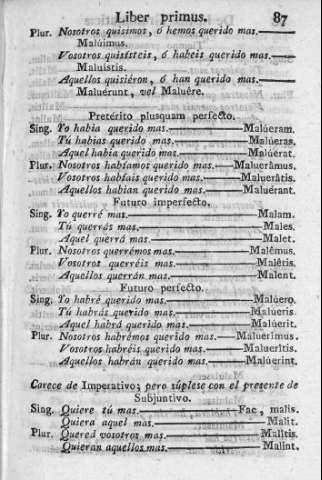 Liber primus. 87
Plur. Nosotros quisimos, ó hemos querido mas.
Malúimus.
Vosotros quisísteis, ó habeis querido mas.
Maluistis.
Aquellos quisiéron, ó han querido mas.
Maluérunt, vel Maluêre.
Pretérito plusquam perfecto.
Sing. Yo habia querido mas. Malúeram.
Tú habias querido mas. Malúeras.
Aquel habia querido mas. Malúerat.
Plur. Nosotros habíamos querido mas. Maluerâmus.
Vosotros habíais querido mas. Maluerâtis.
Aquellos habian querido mas. Malúerant.
Futuro imperfecto.
Sing. Yo querré mas. Malam.
Tú querrás mas. Males.
Aquel querrá mas. Malet.
Plur. Nosotros querrémos mas. Malêmus.
Vosotros querréis mas. Malêtis.
Aquellos querrán mas. Malent.
Futuro perfecto.
Sing. Yo habré querido mas. Malúero.
Tú habrás querido mas. Malúeris.
Aquel habrá querido mas. Malúerit.
Plur. Nosotros habrémos querido mas. Maluerîmus.
Vosotros habréis querido mas. Maluerîtis.
Aquellos habrán querido mas. Malúerint.
Carece de Imperativo; pero súplese con el presente de
Subjuntivo.
Sing. Quiere tú mas. Fac, malis.
Quiera aquel mas. Malit.
Plur. Quered vosotros mas. Malîtis.
Quieran aquellos mas. Malint.